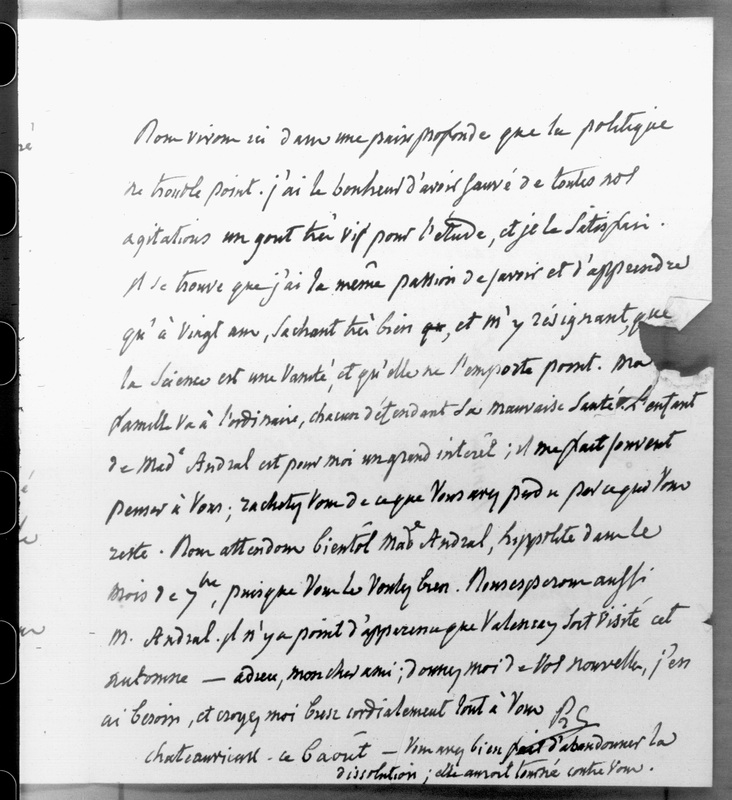 Nous vivons ici dans une paix profonde que la politique
ne trouble point. j'ai le bonheur d'avoir sauvé de toutes nos
agitations un gout très vif pour l'etude, et je le satisfais.
il se trouve que j'ai la même passion de savoir et d'apprendre
qu'à vingt ans, sachant très bien, et m'y résignant, que
la science est une vanité, et qu'elle ne l'emporte point. Ma
famille va à l'ordinaire, chacun défendant sa mauvaise santé. L'enfant
de Made Andral est pour moi un grand interêt; il me fait souvent
penser à vous; rachetez vous de ce que vous avez perdu par ce qui vous
reste. Nous attendons bientôt Made Andral, hyppolite dans le
mois de 7bre, puisque vous le voulez bien. Nous esperons aussi
M. Andral. il n'y a point d'apparence que Valençay soit visité cet
automne — adieu, mon cher ami; donnez moi de vos nouvelles, j'en
ai besoin, et croyez moi bien cordialement tout à vous
chateauvieux - ce 6 aoŭt — Vous avez bien fait d'abandonner la
dissolution; elle auroit tourné contre vous.